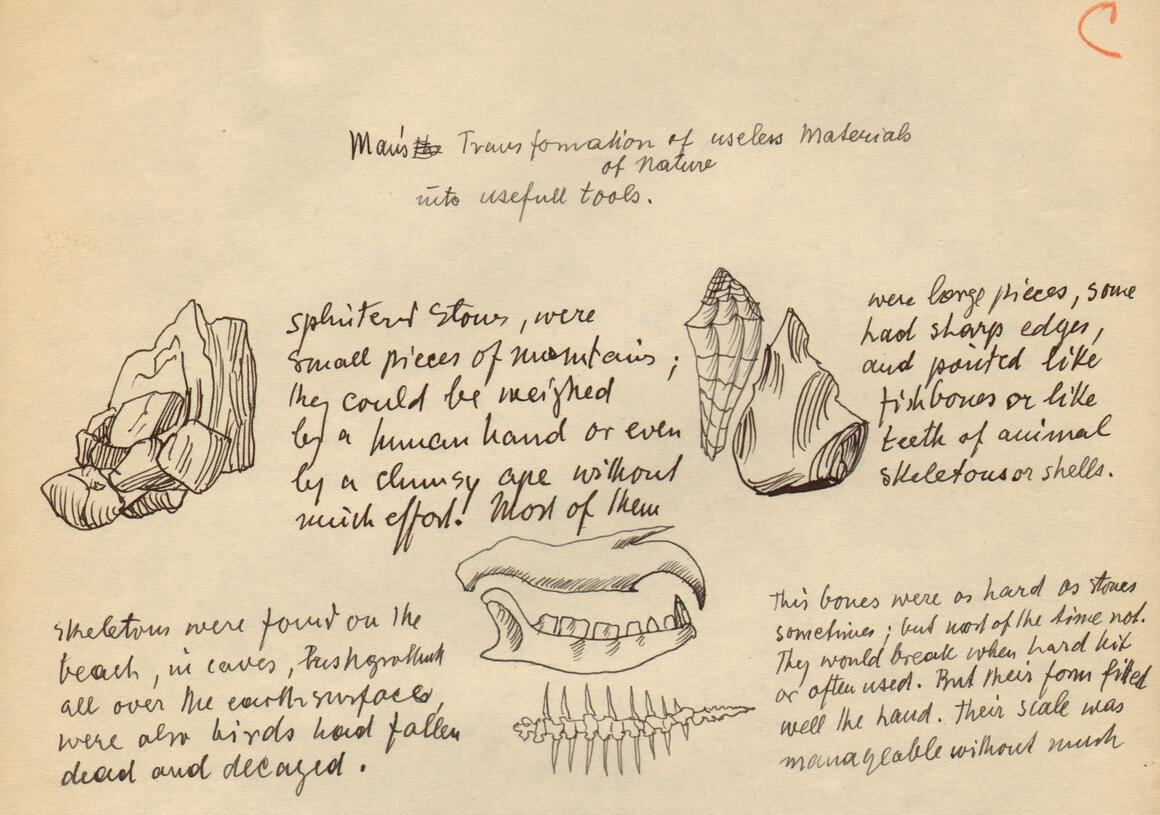 C
Man's the Transfomation of useless Materials
of Nature
into usefull tools.
splintered stones, were
small pieces of mountains;
they could be weighed
by a human hand or even
by a clumsy ape without
much effort! Most of them
were large pieces, some
had sharp edges,
and pointed like
fishbones or like
teeth of animal
skeletons or shells.
Skeletons were found on the
beach, in caves,
all over the earth surfaces,
were also birds had fallen
dead and decayed.
This bones were as hard as stones
sometimes; but most of the time not.
They would break when hard hit
or often used. But their form fitted
well the hand. Their scale was
manageable without much